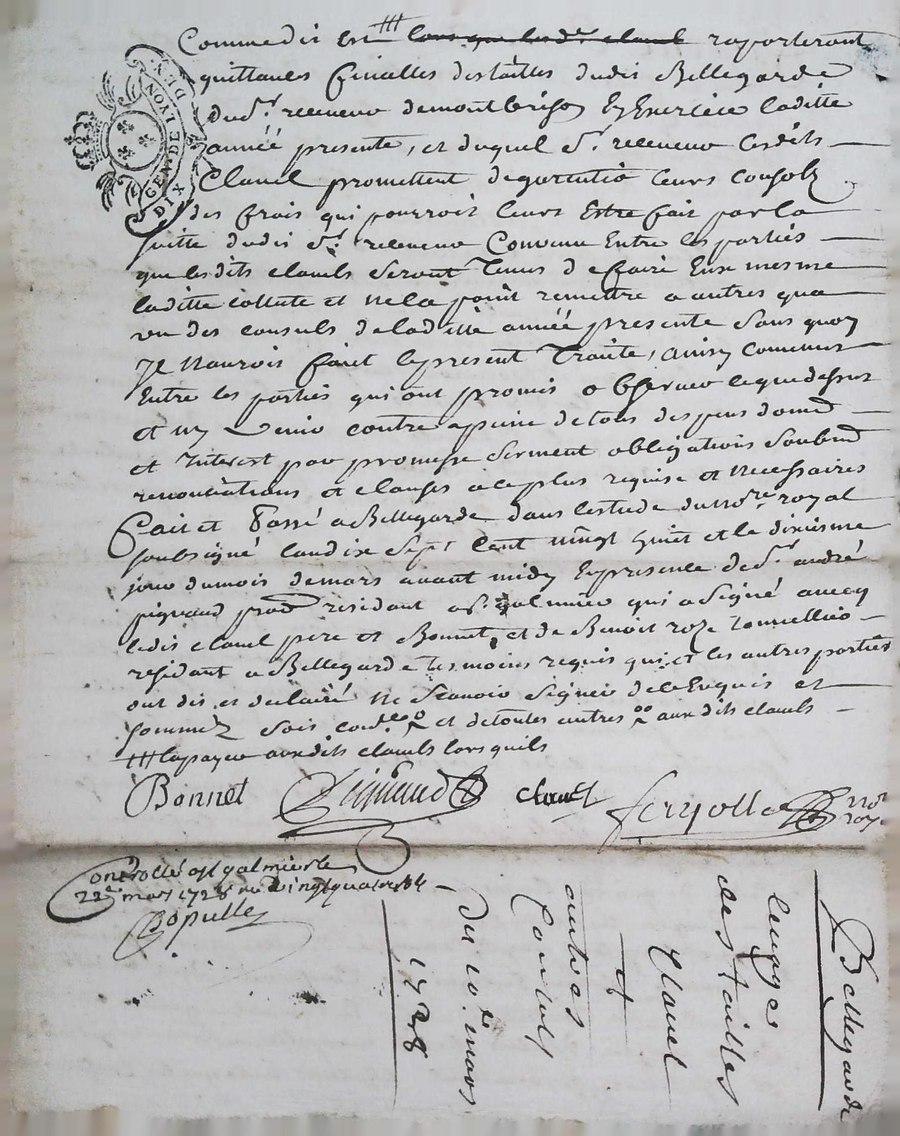 Comme dit est /// lors que lesd. clauel raporteront
quittances finalles des tailles dudit Bellegarde
du sr. receueur de montbrison En Exercice laditte
année presente, et duquel sr. receueur lesdits
Clauel promettent de garentir leurs Consorts
des frais qui pourroit leurs Estre fait par la
suitte dudit sr. receueur Conuenu Entre les parties
que lesdits clauels seront Tenus de faire Eux mesme
laditte collute et ne la point remettre a autres qua
vn des consuls de laditte année presente sans quoy
Je Naurois fait le present Traité, ainsy Conuenus
Entre les parties qui ont promis obseruer le que dessus
et ny Venir contre a peine de tous despens dom
et Interest par promesse serment obligations soubm
renonciations et clauses a ce plus requise et Necessaires
fait et Passé a Bellegarde dans lestude du Nore. royal
soubsigné lan dix sept Cent vingt huict et le dixiesme
jour du mois de mars auant midy En presence de sr. andré
pignaud prad residant a st. galmier qui a signé auecq
ledit clauel pere et Bonnet, et de Benoit roze tonnellier
residant a Bellegarde tesmoins requis qui et les autres parties
ont dit et declairé ne scauoir signer de ce Enquis et
sommez sois et de toutes autres aux dits clauels
/// la payer aux dits clauels lors quils
Bonnet Pignaud clauel feryolle nore roy.
Controllé a st galmier le
22e. mars 1728 vingt quatre s
Bopulle
Bellegarde
leuge
des tailles
Clauel
et
autres
Consuls
Du 10e. mars
1728
GEN. DE LYON
DIX DEN.